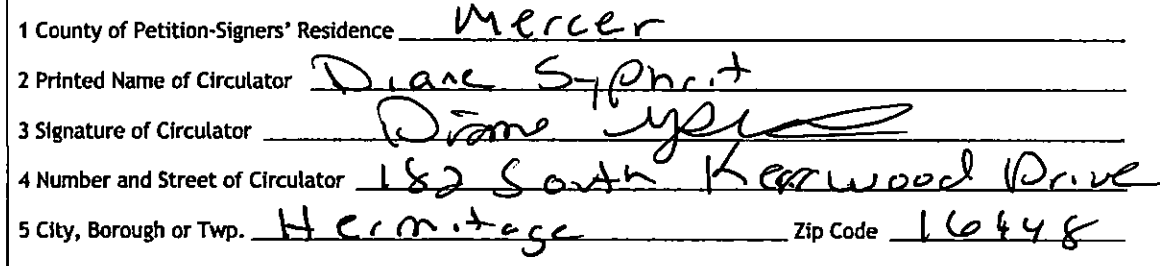 1 County of Petition-Signers' Residence Mercer
2 Printed Name of Circulator Diane Syphrit
3 Signature of Circulator Diane
4 Number and Street of Circulator 182 South Kerrwood Drive
5 City, Borough or Twp. Hermitage Zip Code 16448